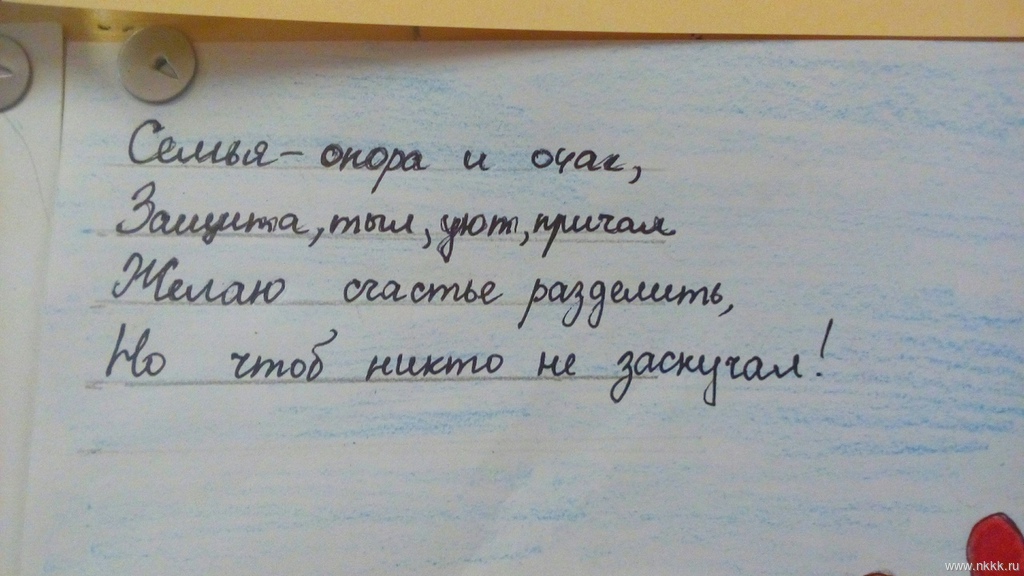 Семья – опора и очак,
Защита, тыл, уют, причал
Желаю счастье разделить,
Но чтоб никто не заскучал!
www.nkkk.ru